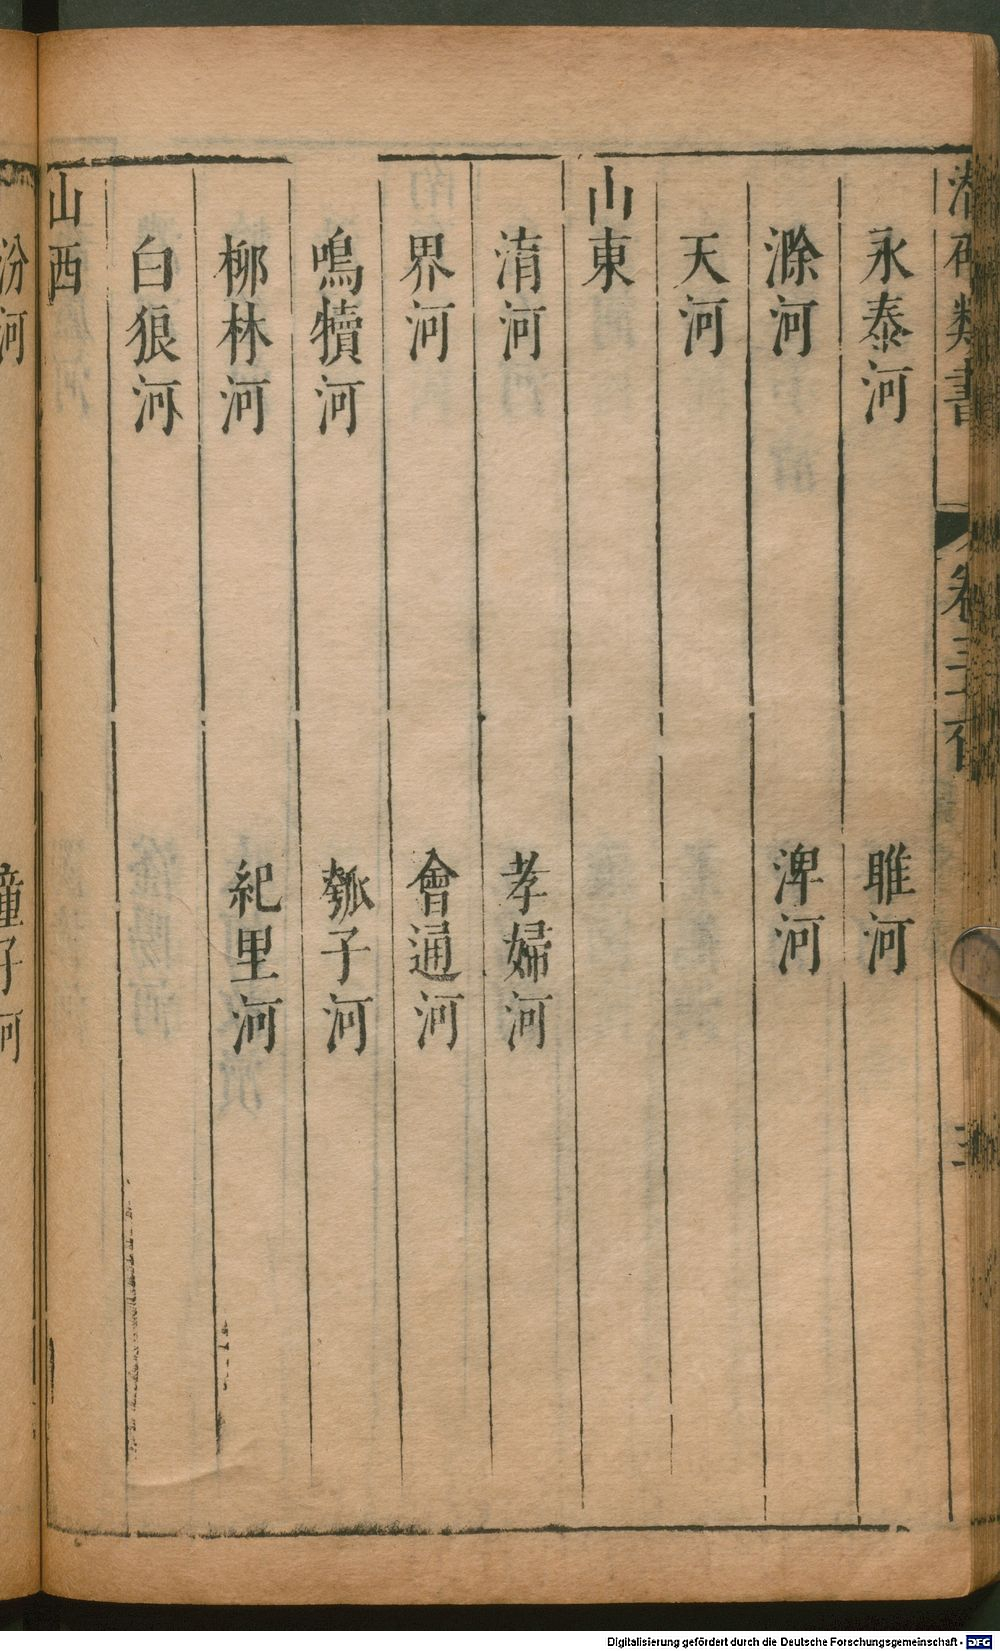 潛確類書
卷三十
三
永泰河 睢河
滁河 渒河
天河
山東
淯河 孝婦河
界河 會通河
鳴犢河 瓠子河
柳林河 紀里河
白狼河
山西
汾河 童子河
Digitalisierung gefördert durch die Deutsche Forschungsgemeinschaft - DFG